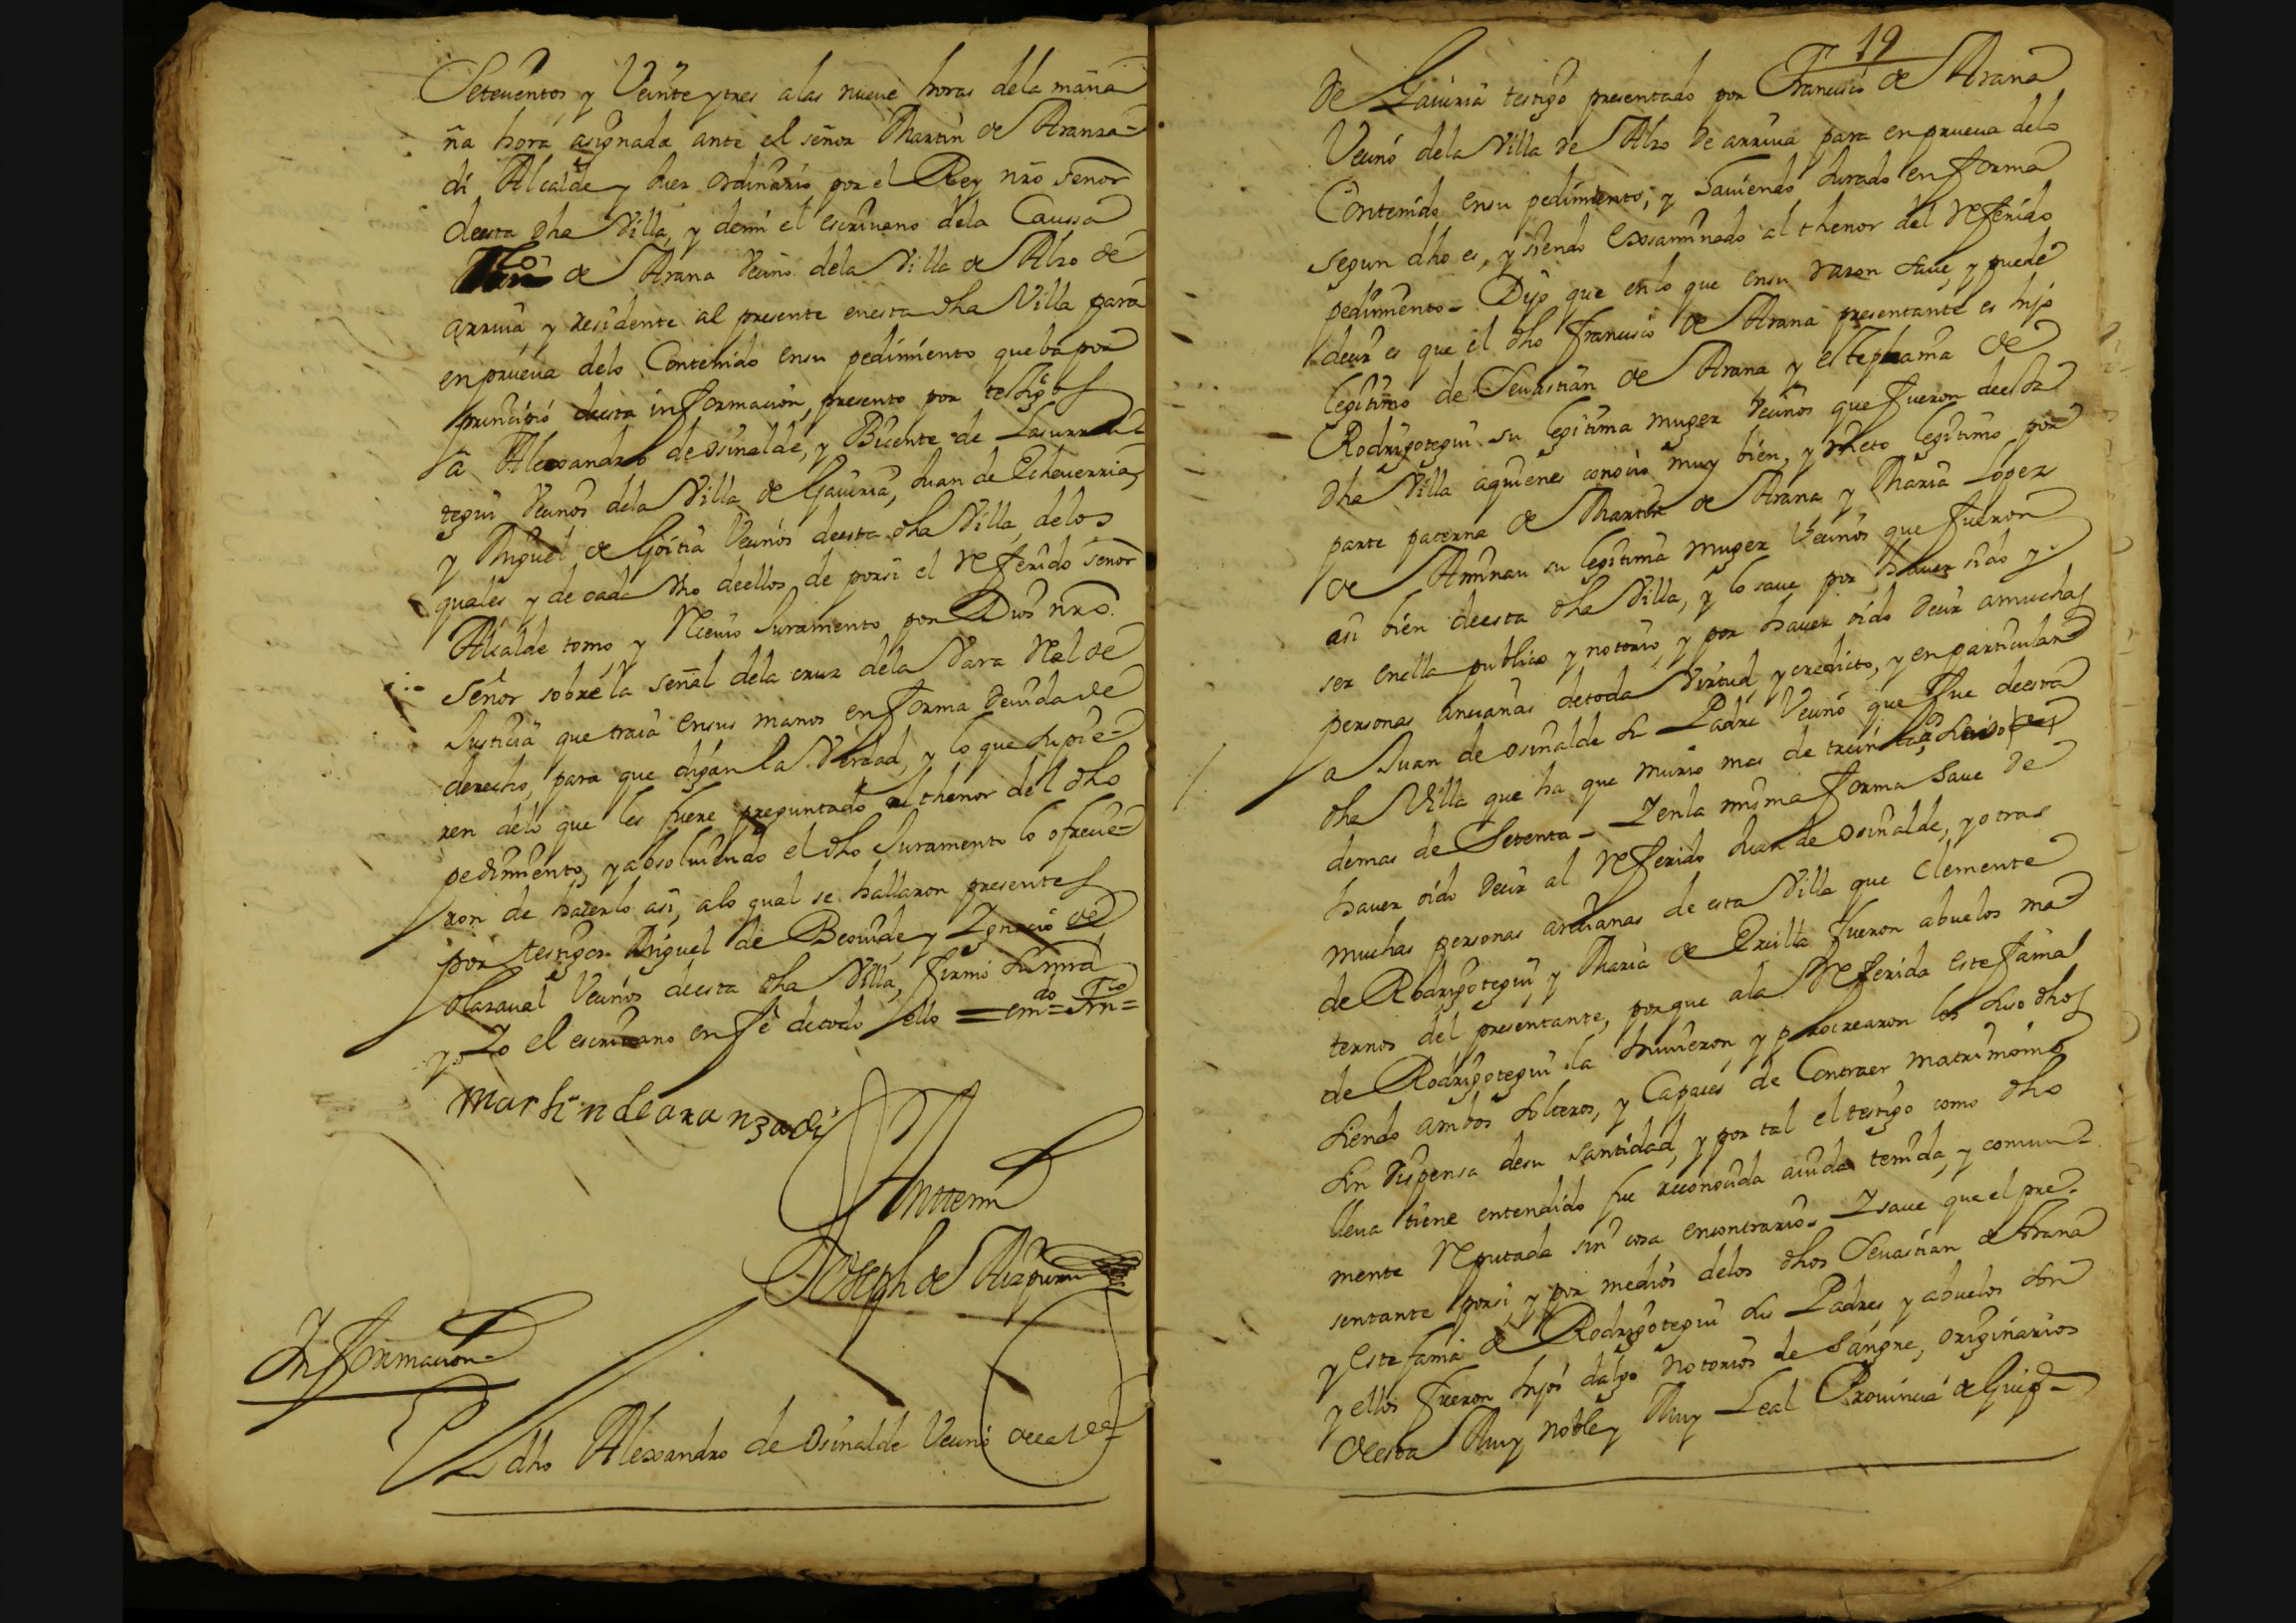 Setecientos y Veinte y tres a las nueue horas dela maña
ña hora asignada ante el señor Martin de Aranza=
di Alcalde y Juez ordinario por el Rey nro señor
deesta dha Villa, y demi el escriuano dela Caussa
de Arana Vecino dela Villa de Alzo de
arriua y residente al presente enesta dha Villa para
enprueua delo Contenido ensu pedimiento que ba por
principio deesta informacion, presento por testigos
a Alexandro de osinalde, y Bicente de Lasurre
tegui Vecinos dela Villa de Gauiria, Juan de Echeuerria,
y Miguel de Goitia Vecinos deesta dha Villa, delos
quales y de cada Vno deellos de porsi el referido señor
Alcalde tomo, y Reciuio Juramento por Dios nro.
Señor sobre la señal dela cruz dela Vara Real de
Justicia que traia ensus manos en forma deuida de
derecho, para que digan la Verdad, y lo que supie=
ren delo que les fuere preguntado al thenor del dho
pedimiento, y absoluiendo el dho Juramento lo ofrecie=
ron de hacerlo asi, alo qual se hallaron presentes
por testigos Miguel de Beouide, y Ignacio de
Olazaual Vecinos deesta dha Villa, firmo su mrd
y Yo el escriuano en fe detodo ello = emdo= Frnco=
Martin de aranzadi
Antemi
Joseph de Aizpuru
Informacion=
El dho Alexandro de Osinalde Vecino deesta Va
19
de Gauiria testigo presentado por Francisco de Arana
Vecino dela Villa de Alzo de arriua para enprueua delo
Contenido ensu pedimiento, y hauiendo Jurado en forma
segun dho es, y siendo Exsaminado al thenor del referido
pedimiento= Dijo que enlo que ensu razon saue, y puede
decir es que el dho Francisco de Arana presentante es hijo
legitimo de Seuastian de Arana y estephama de
Rodrigotegui su legitima muger Vecinos que fueron deesta
dha Villa aquienes conocio muy bien, y nieto legitimo por
parte paterna de Martin de Arana, y Maria Lopez
de Aminau su legitima muger Vecinos que fueron
asi bien deesta dha Villa, y lo saue por hauer sido y
ser enella publico y notorio, y por hauer oido decir amuchas
personas ancianas detoda Virtud, y credicto, y enparticular
a Juan de osinalde su Padre Vecino que fue deesta
dha Villa que ha que murio mas de treinta as
demas de Setenta= Y enla misma forma saue de
hauer oido decir al referido Juan de Osinalde, y otras
muchas personas ancianas de esta Villa que Clemente
de Rodrigotegui y Maria de Ercilla fueron abuelos ma=
ternos del presentante, porque ala referida estefama
de Rodrigotegui la huuieron, y procrearon los suso dhos
siendo ambos solteros, y Capaces de Contraer matrimonio
sin dispensa desu santidad, y por tal el testigo como dho
lleua tiene entendido fue reconocida auida, tenida, y comun=
mente Reputada sin cosa encontrario= Y saue que el pre=
sentante porsi, y por medios delos dhos Seuastian de Arana
y estefama de Rodrigotegui sus Padres, y abuelos son
y ellos fueron hijos dalgo notorios de sangre, originarios
deesta Muy noble, y Muy Leal Prouincia de Guipa